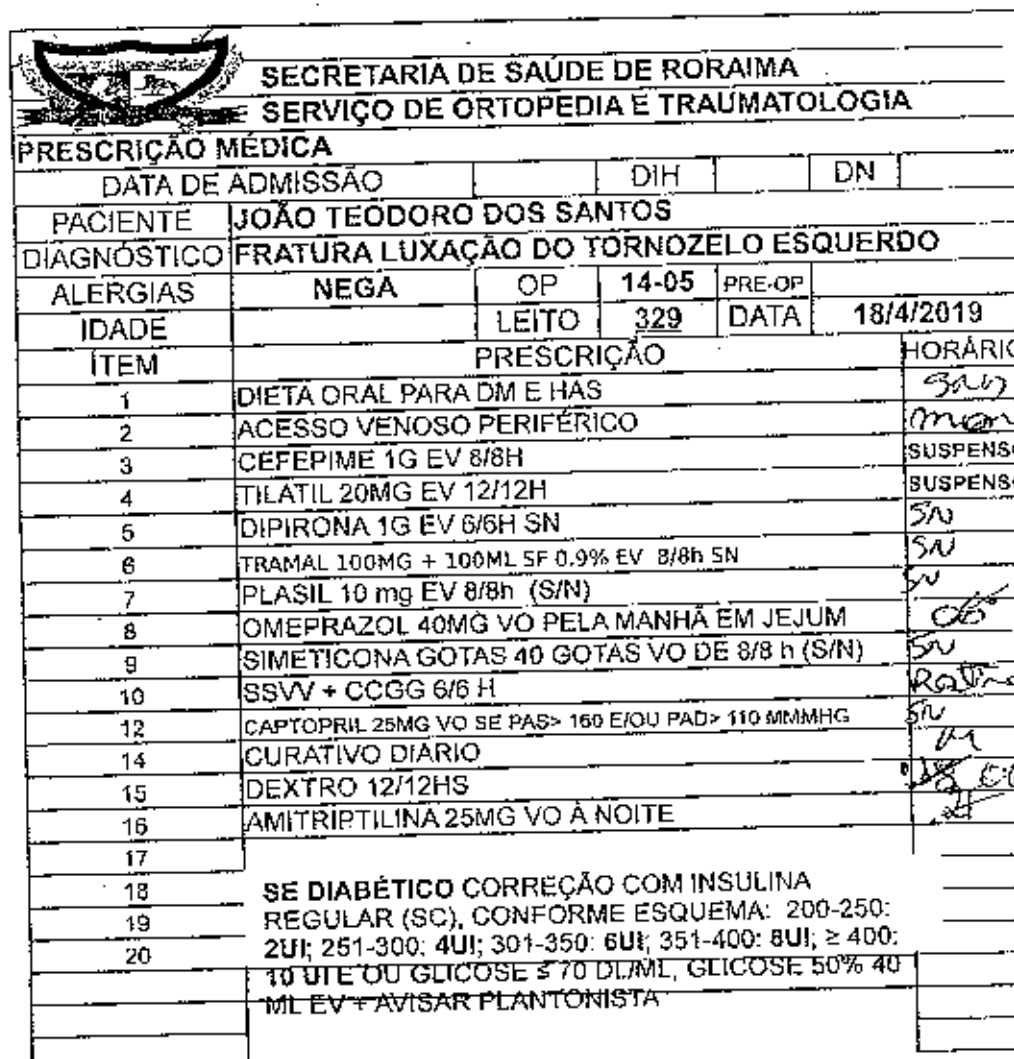 SECRETARIA DE SAÚDE DE RORAIMA
SERVIÇO DE ORTOPEDIA E TRAUMATOLOGIA
PRESCRIÇÃO MÉDICA
DATA DE ADMISSÃO DIH DN
PACIENTE JOÃO TEODORO DOS SANTOS
DIAGNÓSTICO FRATURA LUXAÇÃO DO TORNOZELO ESQUERDO
ALERGIAS NEGA OP 14-05 PRE-OP
IDADE LEITO 329 DATA 18/4/2019
ÍTEM PRESCRIÇÃO HORÁRIO
1 DIETA ORAL PARA DM E HAS
2 ACESSO VENOSO PERIFÉRICO
3 CEFEPIME 1G EV 8/8H SUSPENSO
4 TILATIL 20MG EV 12/12H SUSPENSO
5 DIPIRONA 1G EV 6/6H SN SN
6 TRAMAL 100MG + 100ML SF 0.9% EV 8/8h SN SN
7 PLASIL 10 mg EV 8/8h (S/N) SN
8 OMEPRAZOL 40MG VO PELA MANHÃ EM JEJUM 06
9 SIMETICONA GOTAS 40 GOTAS VO DE 8/8 h (S/N) SN
10 SSVV + CCGG 6/6 H Rotina
12 CAPTOPRIL 25MG VO SE PAS> 160 E/OU PAD> 110 MMMHG SN
14 CURATIVO DIÁRIO M
15 DEXTRO 12/12HS
16 AMITRIPTILINA 25MG VO À NOITE
17
18 SE DIABÉTICO CORREÇÃO COM INSULINA
19 REGULAR (SC), CONFORME ESQUEMA: 200-250:
20 2UI; 251-300: 4UI; 301-350: 6UI; 351-400: 8UI; ≥ 400:
10 UI E OU GLICOSE ≤ 70 DL/ML, GLICOSE 50% 40
ML EV + AVISAR PLANTONISTA